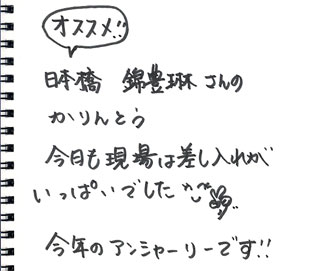 オススメ!!
日本橋 錦豊琳さんの
かりんとう
今日も現場は差し入れが
いっぱいでした
今年のアンシャーリーです!!